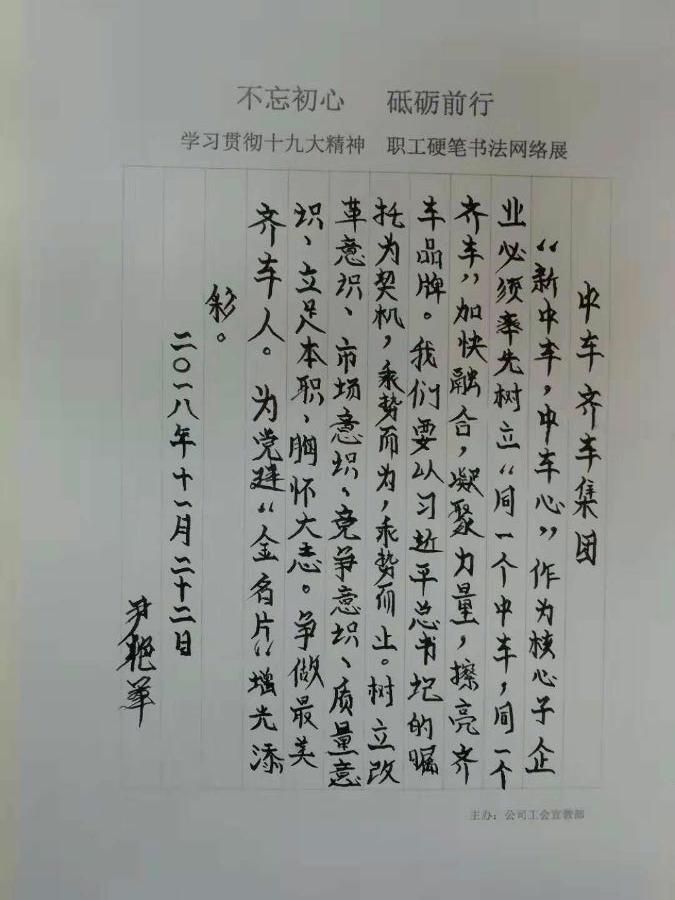 不忘初心 砥砺前行
学习贯彻十九大精神 职工硬笔书法网络展
中车齐车集团
“新中车,中车心”作为核心子企
业必须率先树立“同一个中车,同一个
齐车”加快融合,凝聚力量,擦亮齐
车品牌。我们要以习近平总书记的嘱
托为契机,乘势而为,乘势而上。树立改
革意识、市场意识、竞争意识、质量意
识、立足本职、胸怀大志。争做最美
齐车人。为党建“金名片”增光添
彩。
二〇一八年十一月二十二日
尹艳苹
主办:公司工会宣教部